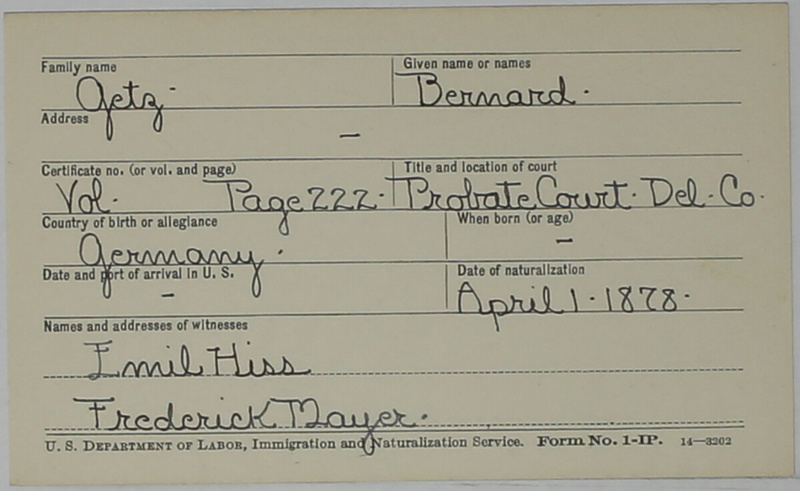 Family name Given name or names
Getz. Bernard.
Address
—
Certificate no. (or vol. and page) Title and location of court
Vol. Page 222. Probate Court. Del. Co.
Country of birth or allegiance When born (or age)
Germany. —
Date and port of arrival in U. S. Date of naturalization
— April 1. 1878.
Names and addresses of witnesses
Emil Hiss
Frederick Mayer.
U. S. DEPARTMENT OF LABOR, Immigration and Naturalization Service. Form No. 1-IP. 14—3202